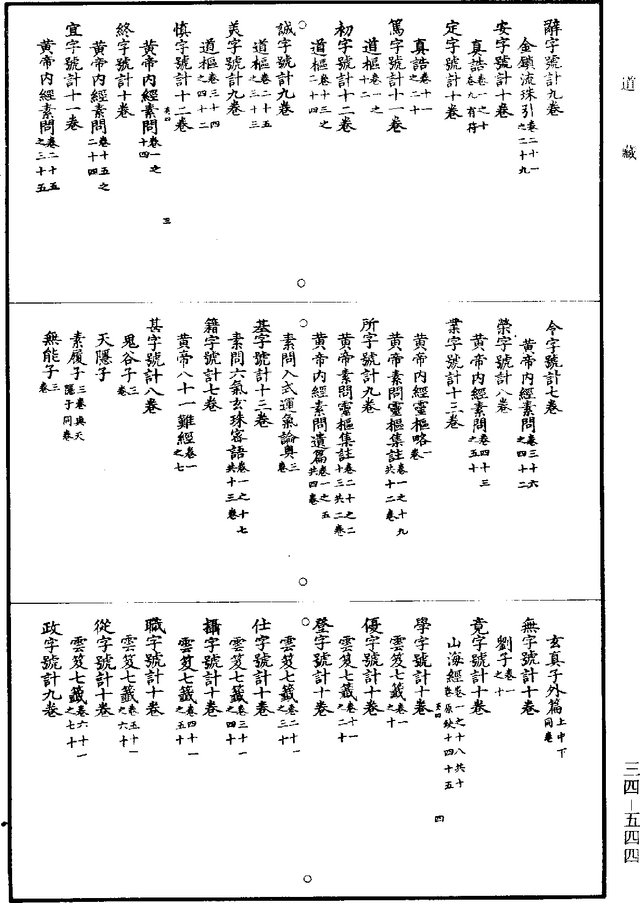 道藏
辭字號計九卷
金鎖流珠引卷二十一之二十九
安字號計十卷
真誥卷一之十卷九有符
定字號計十卷
真誥卷十一之二十
篤字號計十一卷
道樞卷一之十二
初字號計十二卷
道樞卷十三之二十四
誠字號計九卷
道樞卷二十五之三十三
美字號計九卷
道樞卷三十四之四十二
慎字號計十二卷
三
黃帝內經素問卷一之十四
終字號計十卷
黃帝內經素問卷十五之二十四
宜字號計十一卷
黃帝內經素問卷二十五之三十五
令字號計七卷
黃帝內經素問卷三十六之四十二
榮字號計八卷
黃帝內經素問卷四十三之五十
業字號計十三卷
黃帝內經靈樞略一卷
黃帝素問靈樞集註卷一之十九共十二卷
所字號計九卷
黃帝素問靈樞集註卷二十之二十三共二卷
黃帝內經素問遺篇卷一之五共四卷
素問入式運氣論奧三卷
基字號計十三卷
素問六氣玄珠密語卷一之十七共十三卷
籍字號計七卷
黃帝八十一難經卷一之七
甚字號計八卷
鬼谷子三卷
天隱子
素履子三卷與天隱子同卷
無能子三卷
玄真子外篇上中下同卷
無字號計十卷
劉子卷一之十
竟字號計十卷
山海經卷一之十八共十卷原缺十四十五
四
學字號計十卷
雲笈七籤卷一之十
優字號計十卷
雲笈七籤卷十一之二十
登字號計十卷
雲笈七籤卷二十一之三十
仕字號計十卷
雲笈七籤卷三十一之四十
攝字號計十卷
雲笈七籤卷四十一之五十
職字號計十卷
雲笈七籤卷五十一之六十
從字號計十卷
雲笈七籤卷六十一之七十
政字號計九卷
三四－五四四